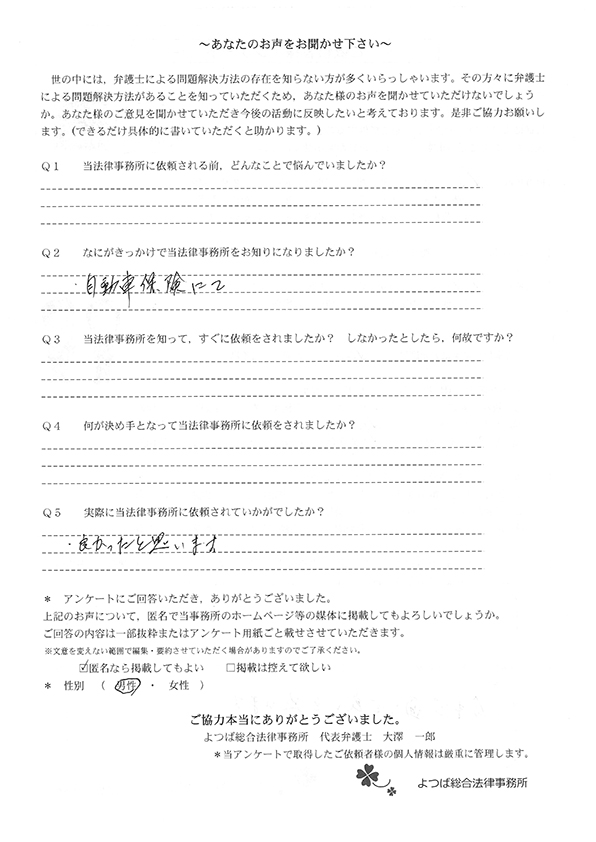 ～あなたのお声をお聞かせ下さい～
世の中には、弁護士による問題解決方法の存在を知らない方が多くいらっしゃいます。その方々に弁護士
による問題解決方法があることを知っていただくため，あなた様のお声を聞かせていただけないでしょう
か。あなた様のご意見を聞かせていただき今後の活動に反映したいと考えております。是非ご協力お願いし
ます。(できるだけ具体的に書いていただくと助かります。)
Ｑ１　当法律事務所に依頼される前，どんなことで悩んでいましたか？
Ｑ２　なにがきっかけで当法律事務所をお知りになりましたか？
・自動車保険にて
Ｑ３　当法律事務所を知って，すぐに依頼をされましたか？　しなかったとしたら，何故ですか？
Ｑ４　何が決め手となって当法律事務所に依頼をされましたか？
Ｑ５　実際に当法律事務所に依頼されていかがでしたか？
・良かったと思います
＊　アンケートにご回答いただき，ありがとうございました。
上記のお声について，匿名で当事務所のホームページ等の媒体に掲載してもよろしいでしょうか。
ご回答の内容は一部抜粋またはアンケート用紙ごと載せさせていただきます。
※文意を変えない範囲で編集・要約させていただく場合がありますのでご了承ください。
☑匿名なら掲載してもよい　□掲載は控えて欲しい
＊　性別　（　男性　・　女性　）
ご協力本当にありがとうございました。
よつば総合法律事務所　代表弁護士　大澤　一郎
＊当アンケートで取得したご依頼者様の個人情報は厳重に管理します。
よつば総合法律事務所